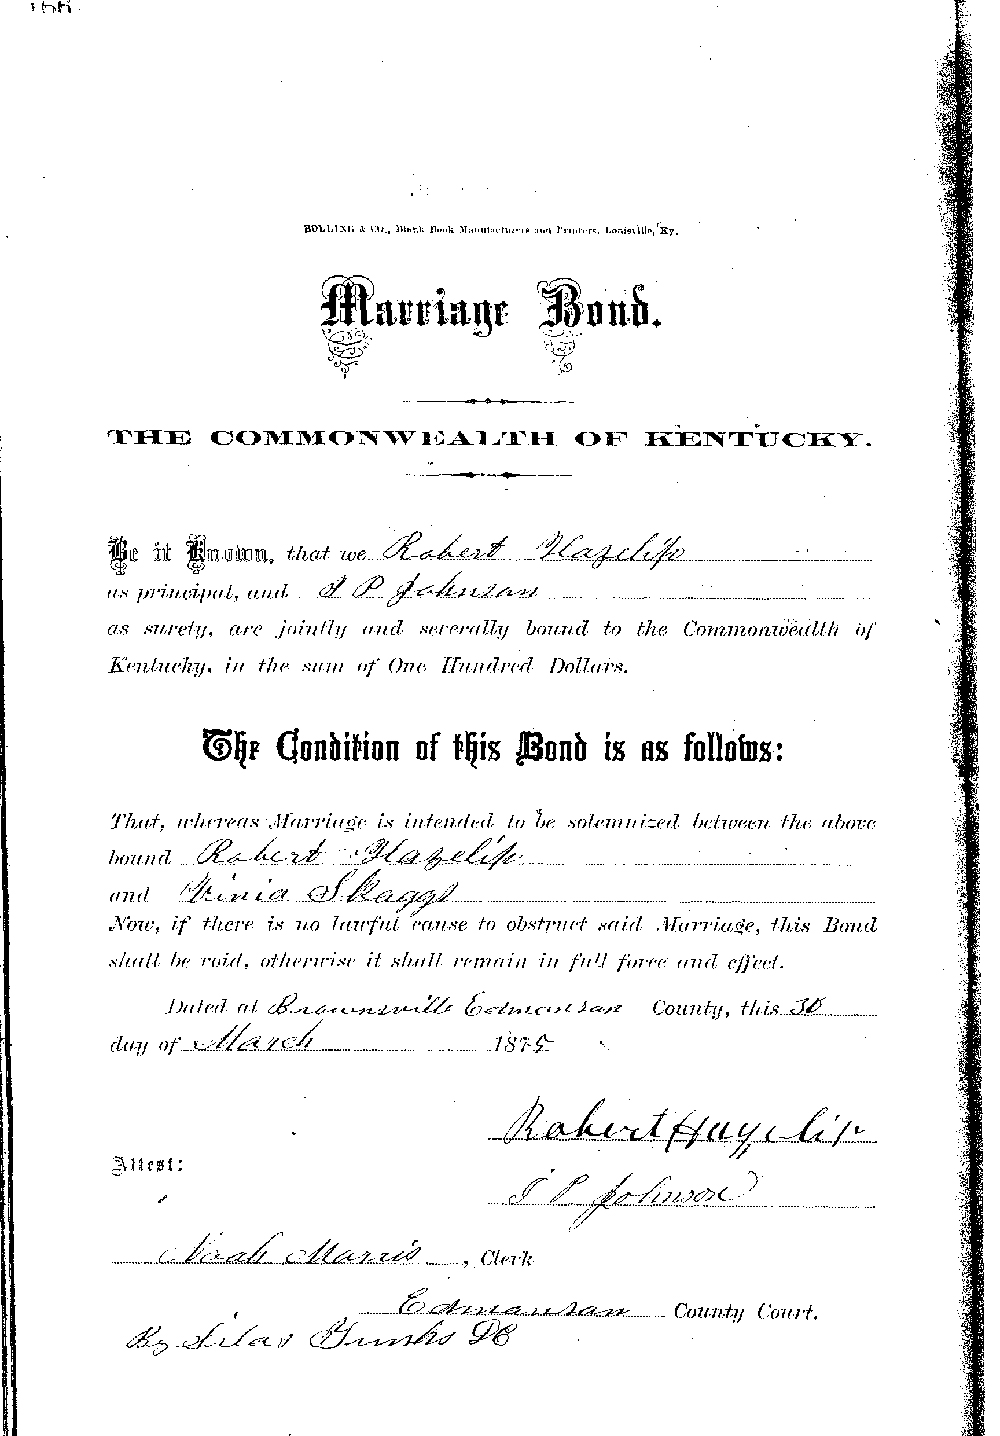 BOLLING & CO., Blank Book Manufacturers and Printers, Louisville, Ky.
Marriage Bond.
THE COMMONWEALTH OF KENTUCKY.
Be it Known, that we Robert Hazelip
as principal, and J P Johnson
as surety, are jointly and severally bound to the Commonwealth of
Kentucky, in the sum of One Hundred Dollars.
The Condition of this Bond is as follows:
That, whereas Marriage is intended to be solemnized between the above
bound Robert Hazelip
and Vinia Skaggs
Now, if there is no lawful cause to obstruct said Marriage, this Bond
shall be void, otherwise it shall remain in full force and effect.
Dated at Brownsville Edmonson County, this 30
day of March 1875
Robert Hazelip
Attest:
J P Johnson
Noah Morris, Clerk
Edmonson County Court.
By Silas DC